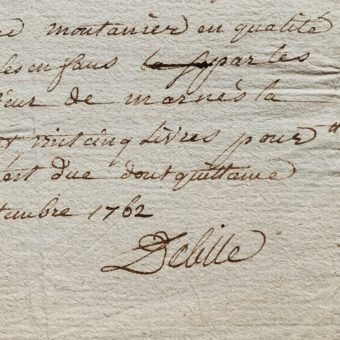 re moutanier en qualité
les enfans par les
ieur de marnés la
et vint cinq Livres pour
est due dont quittance
tembre 1762
Debille